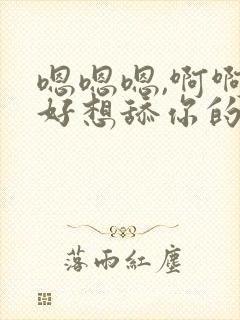 嗯嗯嗯,啊啊
好想舔你的
落雨紅塵